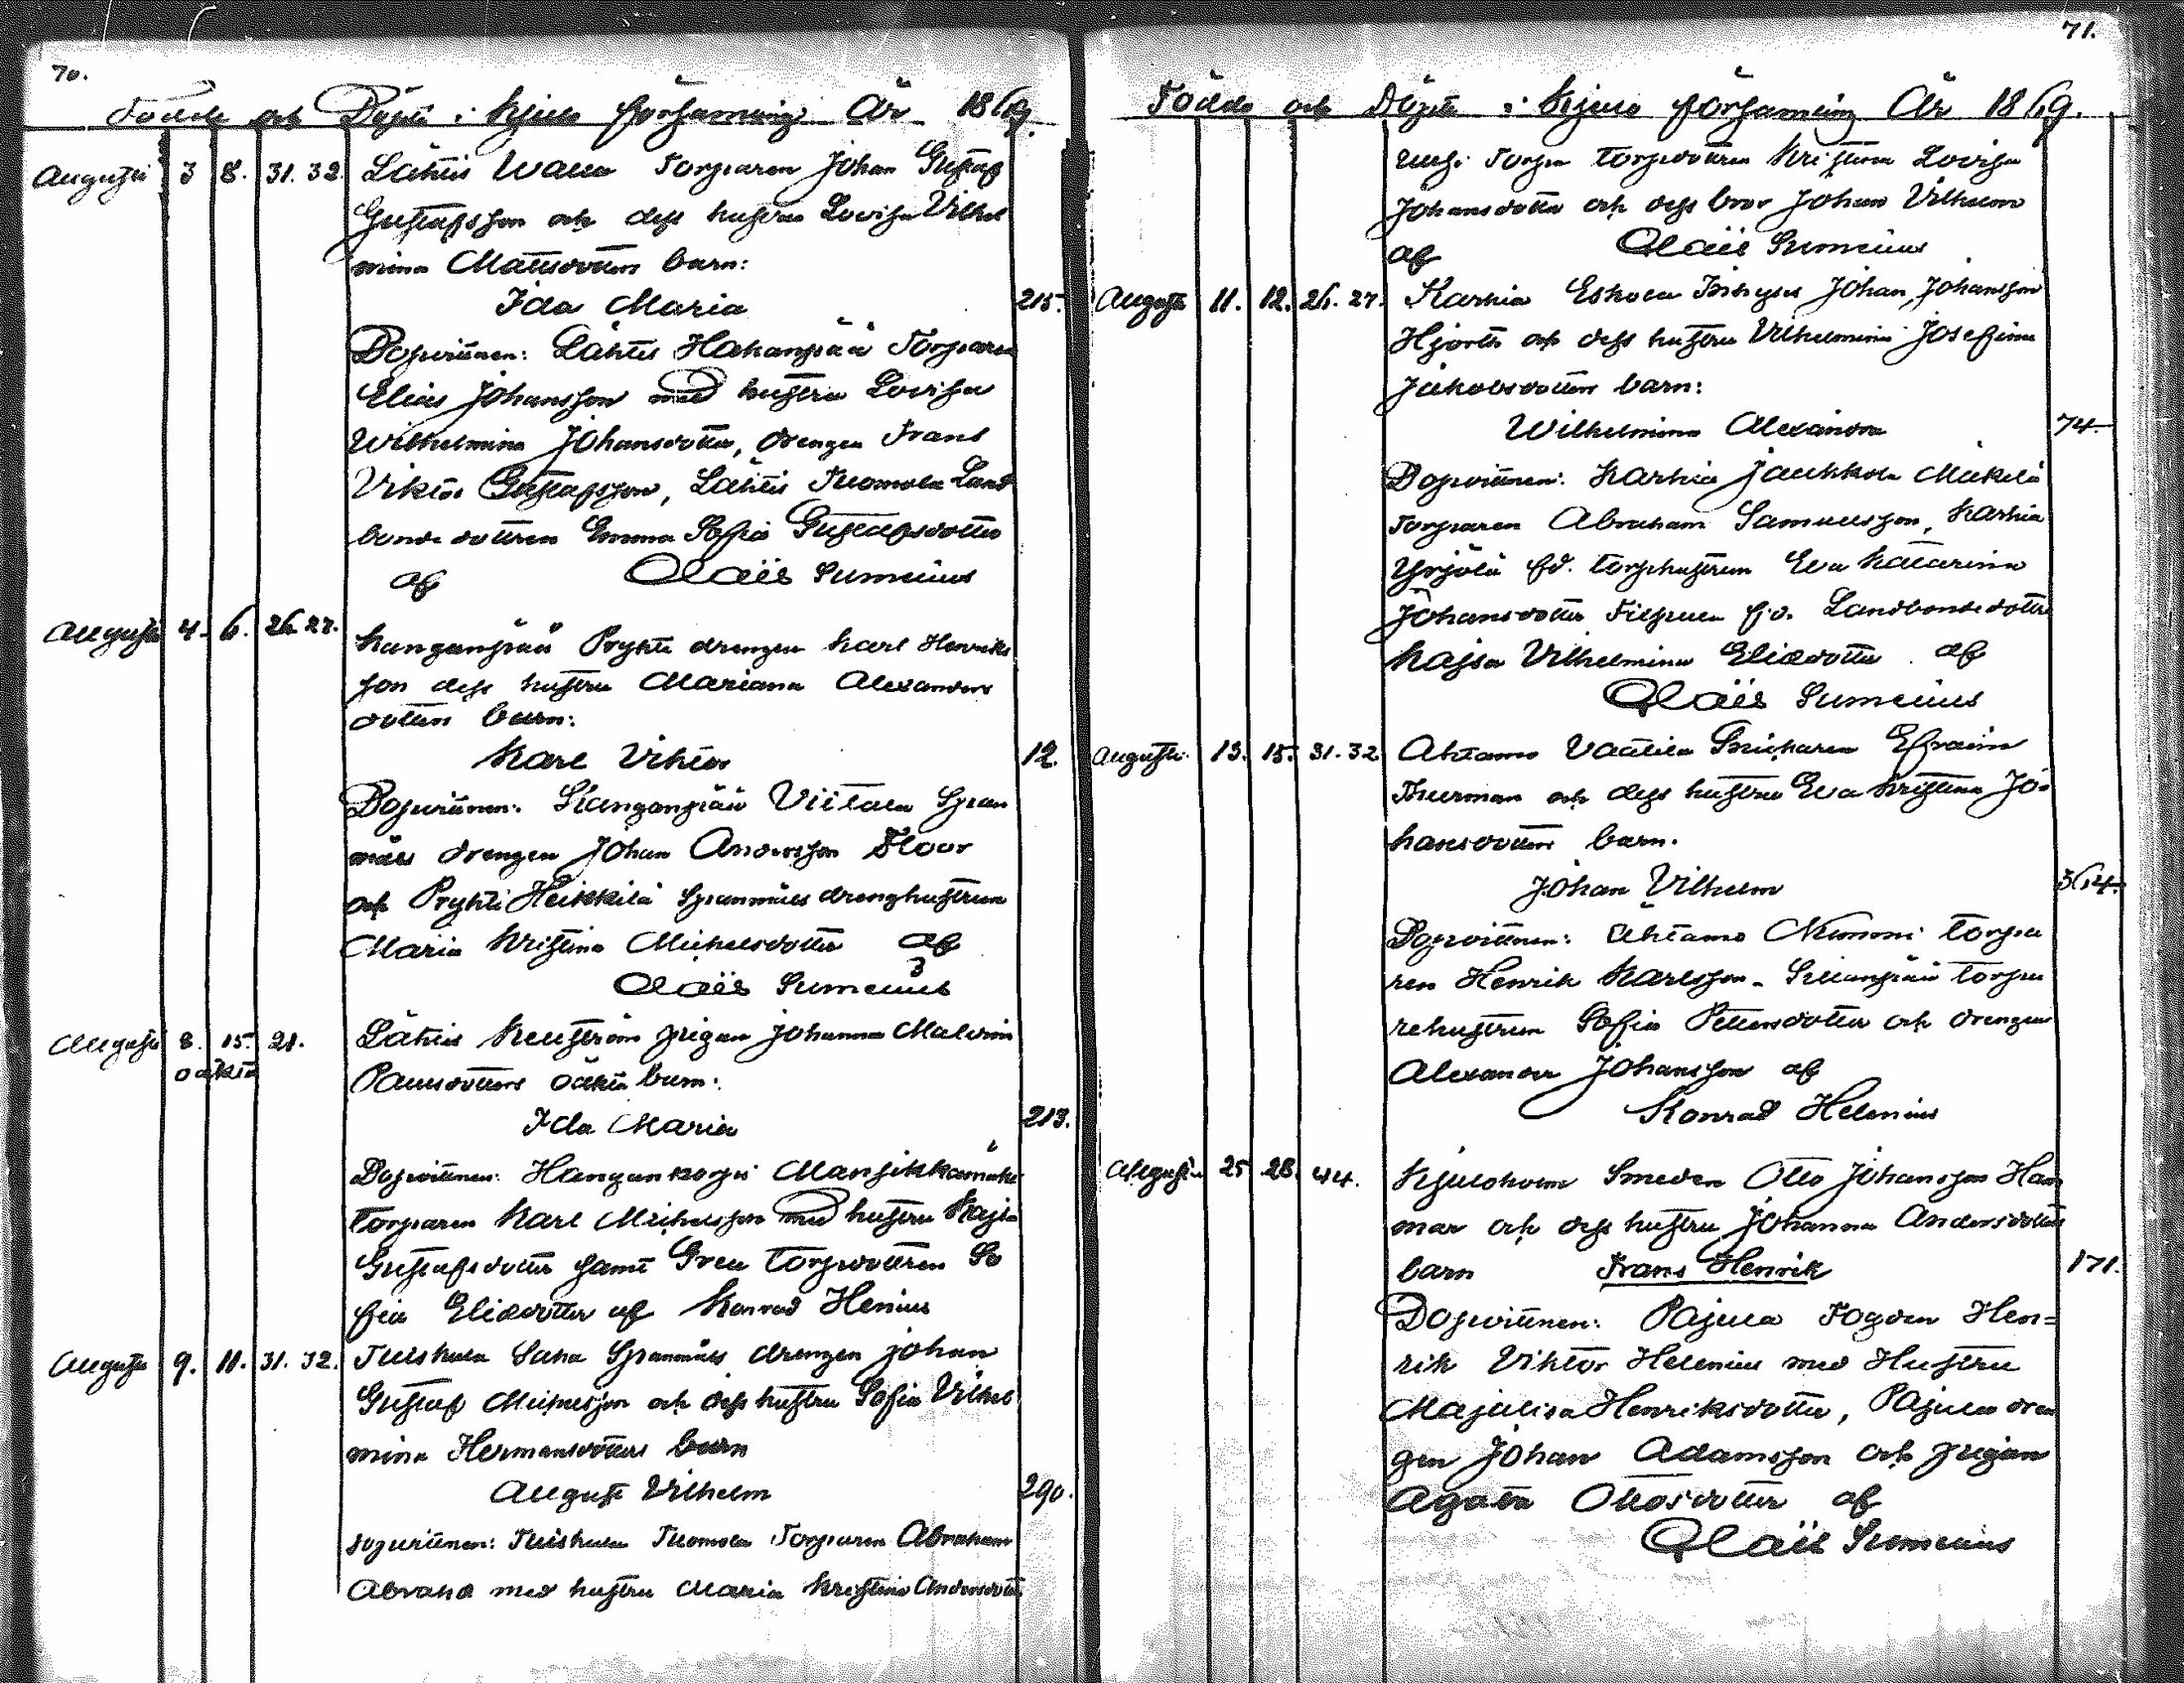 70.
Födde och Döpte i Kjulo församling År 1869.
Augusti 3 8. 31. 32. Lähtis Walla Torparen Johan Gustaf
Gustafsson och dess hustru Lovisa Vilhel
mina Mattsdotters barn:
Ida Maria 215.
Dopvittnen: Lähtis Hakanpää Torparen
Elias Johansson med hustru Lovisa
Wilhelmina Johansdotter, drengen Frans
Viktor Gustafsson, Lähtis Tuomola Land
bonde dottren Emma Sofia Gustafsdotter
af Olaii Sumelius
Augusti 4. 6. 26. 27. Kanganpää Prykti drengen Karl Henriks
son dess hustru Mariana Alexanders
dotters barn:
Karl Viktor 12.
Dopvittnen: Kanganpää Viitala Span
måls drengen Johan Andersson Floor
och Prykti Heikkilä Spanmåls drenghustrun
Maria Kristina Michelsdotter af
Olaii Sumelius
Augusti 8. 15. 21. Lähtis Kenström pigan Johanna Malvina
oäkta Paulsdotters oäkta barn:
Ida Maria 213.
Dopvittnen: Hangankorpi Mansikkamäki
torparen Karl Michelsson med hustru Kajsa
Gustafsdotter samt torpdottren So
fia Eliedotter af Konrad Henius
Augusti 9. 11. 31. 32. Tuiskula Saha Spanmåls drengen Johan
Gustaf Michelsson och dess hustru Sofia Vilhel
mina Hermansdotters barn
August Vilhelm 290.
Dopvittnen: Tuiskula Tuomola Torparen Abraham
Abrahd med hustru Maria Kristina Andersdotter
71.
Födde och Döpte i Kjulo församling År 1869.
torpdottren Kristina Lovisa
Johansdotter och dess bror Johan Vilhelm
af Olaii Sumelius
Augusti 11. 12. 26. 27. Karhia Eskola Inhyses Johan Johansson
Hjorth och dess hustru Vilhelmina Josefina
Jakobsdotters barn:
Wilhelmina Alexandra 74.
Dopvittnen: Karhia Jaukkola Mickelä
Torparen Abraham Samuelsson, Karhia
Yrjölä fd. torphustrun Eva Katarina
Johansdotter f.d. Landbondedotter
Kajsa Vilhelmina Eliedotter af
Olaii Sumelius
Augusti 13. 15. 31. 32. Ahtamo Vaatila Snickaren Efraim
Thurman och dess hustru Eva Kristina Jo-
hansdotters barn.
Johan Vilhelm 364.
Dopvittnen: Ahtamo Nummi torpa
ren Henrik Karlsson. torpa
rehustrun Sofia Pettersdotter och drengen
Alexander Johansson af
Konrad Helenius
Augusti 25 28. 44. Kjuloholm Smeden Otto Johansson Ham
mar och dess hustru Johanna Andersdotters
barn Frans Henrik 171.
Dopvittnen: Pajula Fogden Hen=
rik Viktor Helenius med Hustru
Majalisa Henriksdotter, Pajula dren
gen Johan Adamsson och pigan
Agata Ottosdotter af
Olaii Sumelius